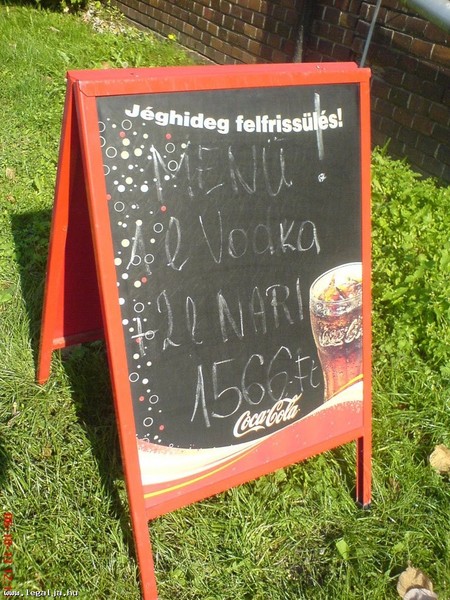 Jéghideg felfrissülés!
MENÜ!
1 l Vodka
+2l NARI
1566.Ft
Coca-Cola
www.legalja.hu